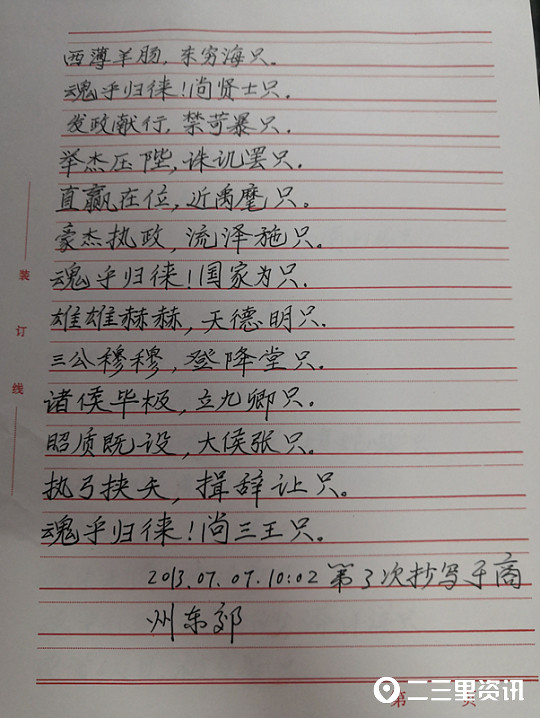 西薄羊肠，东穷海只。
魂乎归徕！尚贤士只。
发政献行，禁苛暴只。
举杰压陛，诛讥罢只。
直赢在位，近禹麾只。
豪杰执政，流泽施只。
魂乎归徕！国家为只。
雄雄赫赫，天德明只。
三公穆穆，登降堂只。
诸侯毕极，立九卿只。
昭质既设，大侯张只。
执弓挟矢，揖辞让只。
魂乎归徕！尚三王只。
2013.07.07.10:02第3次抄写于商
州东郊
装
订
线
第 页
二三里资讯